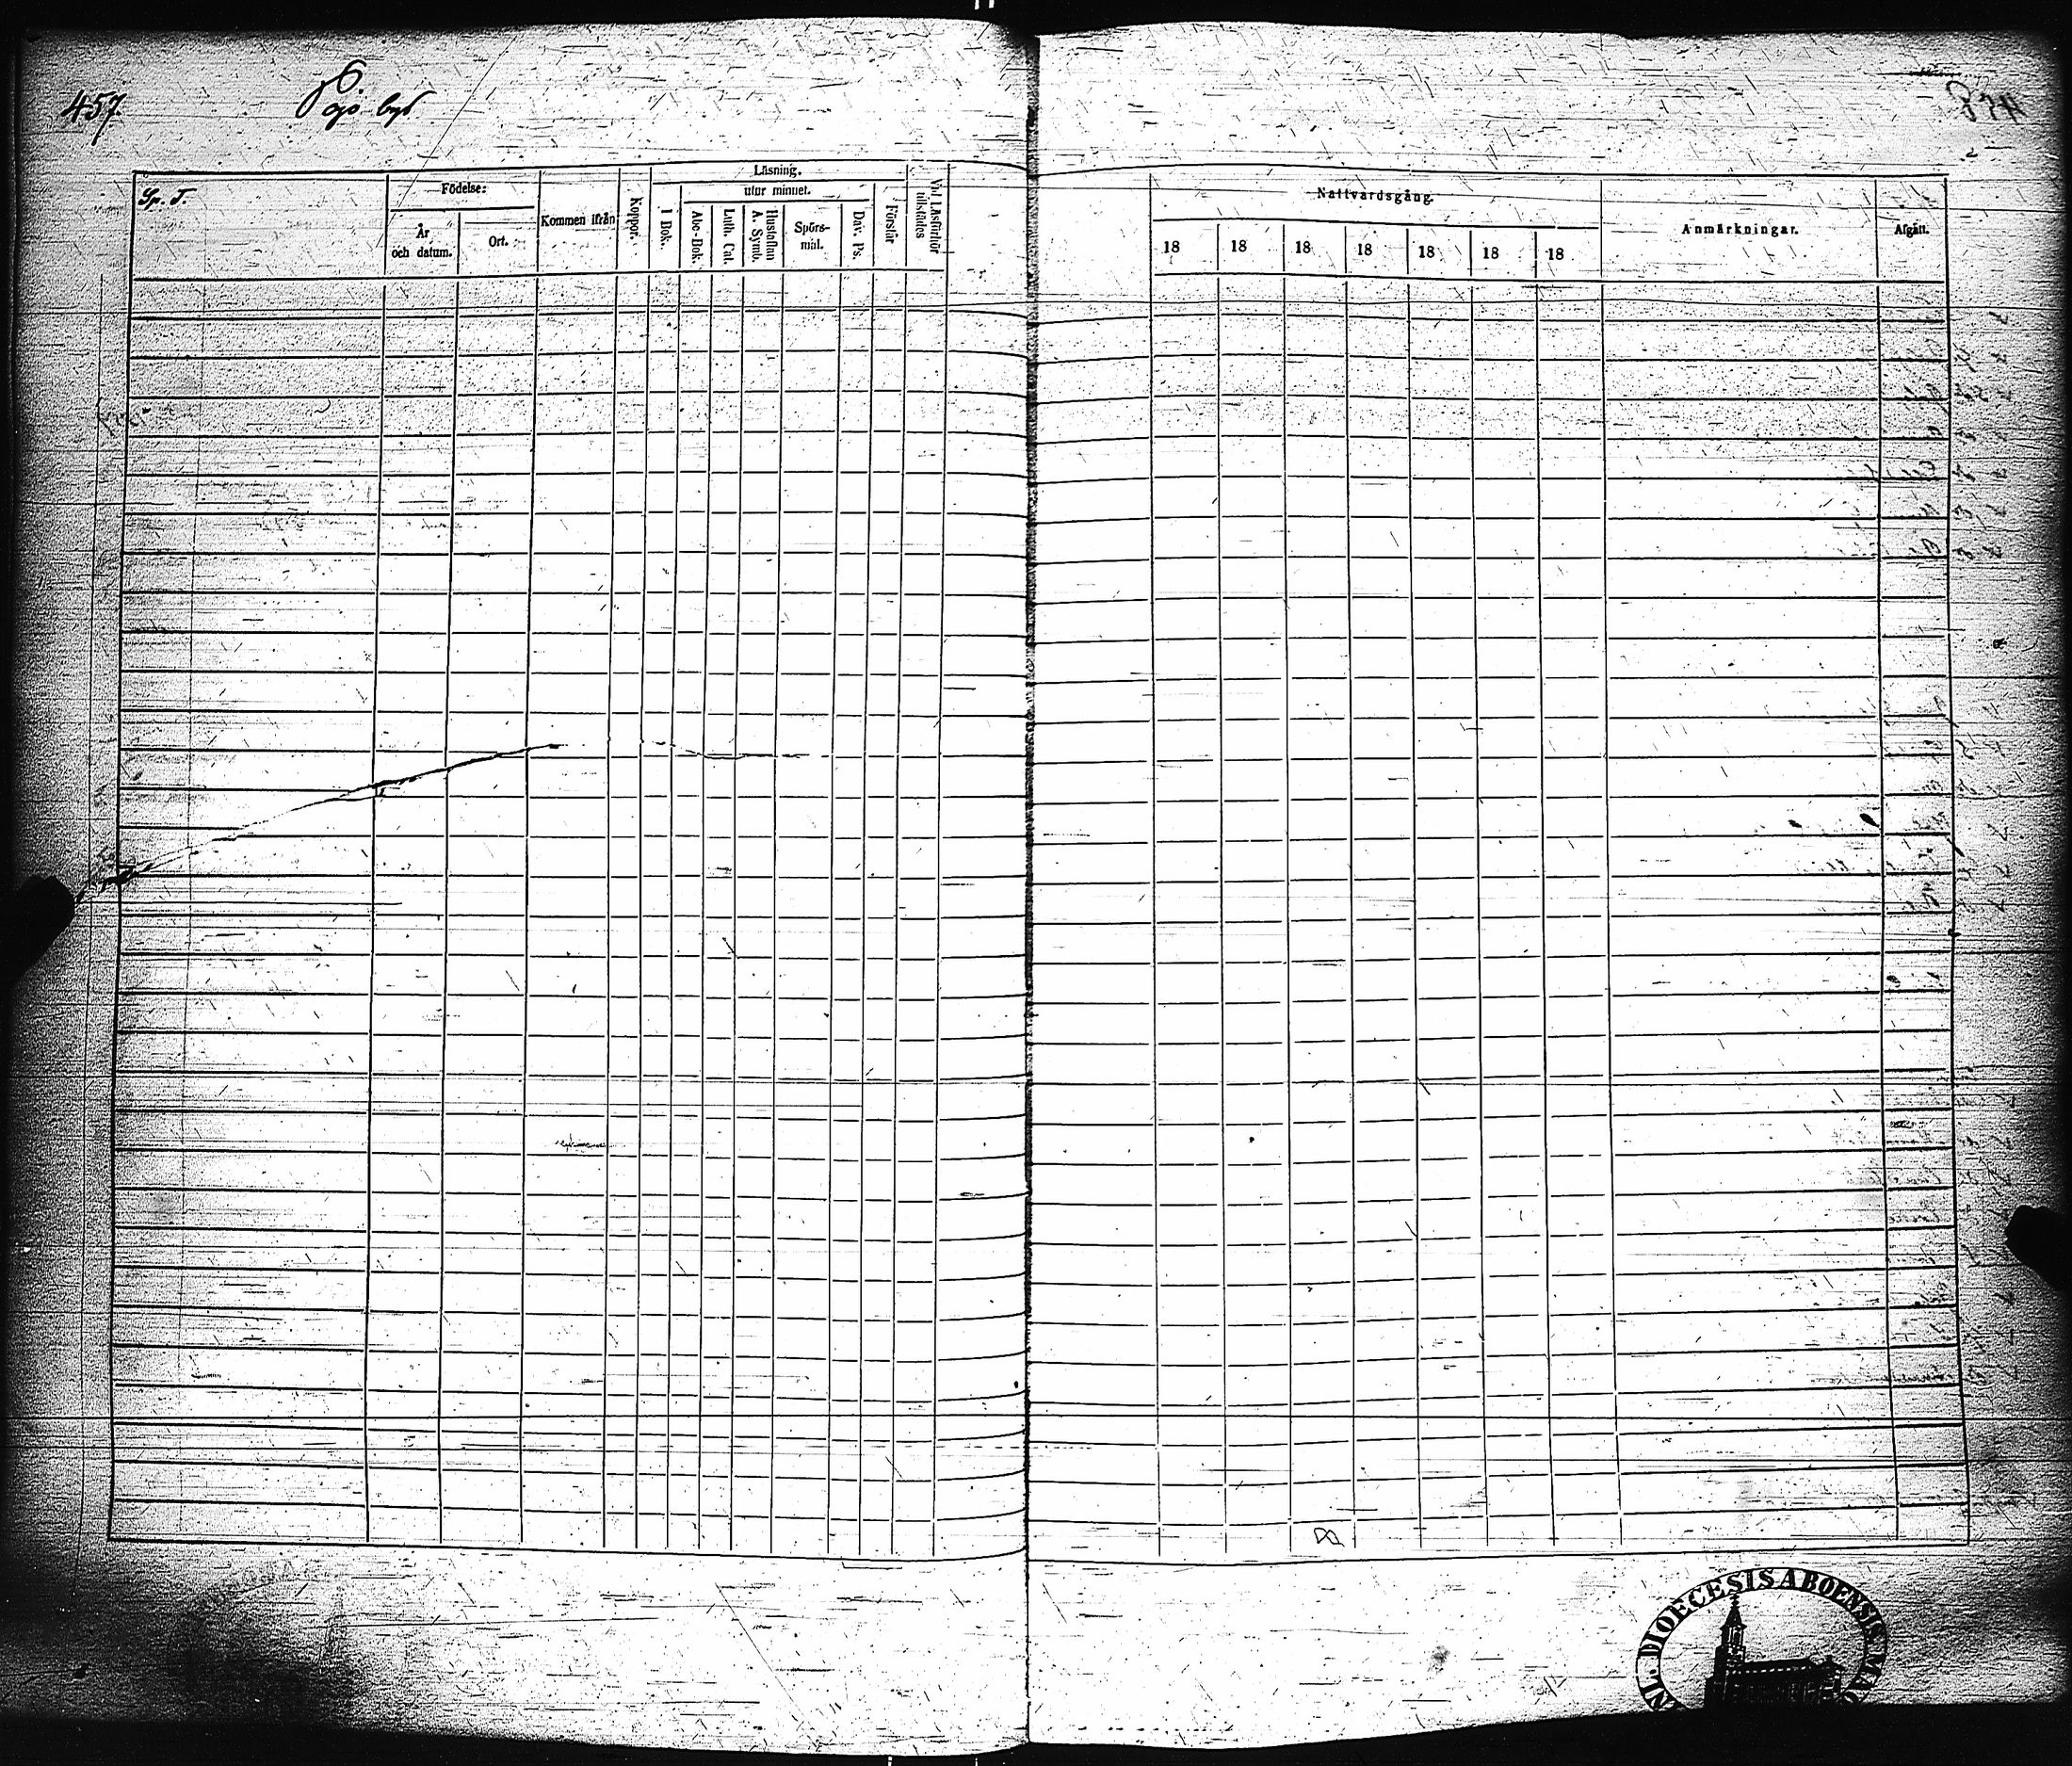 457.
Sp. T.
Födelse:
År
och datum.
Ort.
Kommen ifrån
Koppor.
Läsning.
I Bok.
utur minnet.
Abc-Bok.
Luth. Cat.
Hustaflan
A. Symb.
Spörs-
mål.
Dav. Ps.
Förstår
Vid Läsförhör
tillstädes
Nattvardsgång.
18 18 18 18 18 18 18
Anmärkningar.
Afgått.
DIOECESIS ABOENSIS